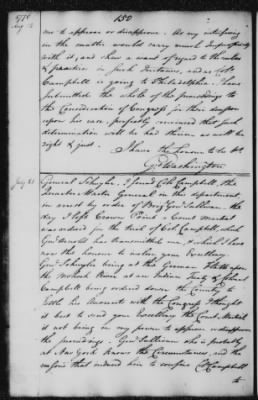 1776
150
Aug 6
me to approve or disapprove. As my interfering
in the matter would carry much Impropriety
with it, and shew a want of regard to the rules
& practice in such Instances, and as Colo.
Campbell is going to Philadelphia. I have
submitted the whole of the proceedings to
the Consideration of Congress for their decision
upon his case, perfectly convinced that such
determination will be had therein as will be
right & just.
I have the honour to be &c.
Go. Washington
July 31
General Schuyler. I found Colo. Campbell, the
Quarter Master General in this department
in arrest by order of Brig. Genl. Sullivan. the
day I left Crown Point a Court Martial
was ordered for the trial of Colo. Campbell, which
Genl. Arnold has transmitted me, & which I have
now the honour to inclose your Excellency.
Genl. Schuyler being at the German Flatts upon
the Mohock River at an Indian Treaty & Colonel
Campbell being ordered down the Country to
settle his Accounts with the Congress I thought
it best to send your Excellency the Court Martial
it not being in my power to approve or disapprove
the proceedings. Genl. Sullivan who is probably
at New York knows the Circumstances, and the
reasons that induced him to confine Colo. Campbell